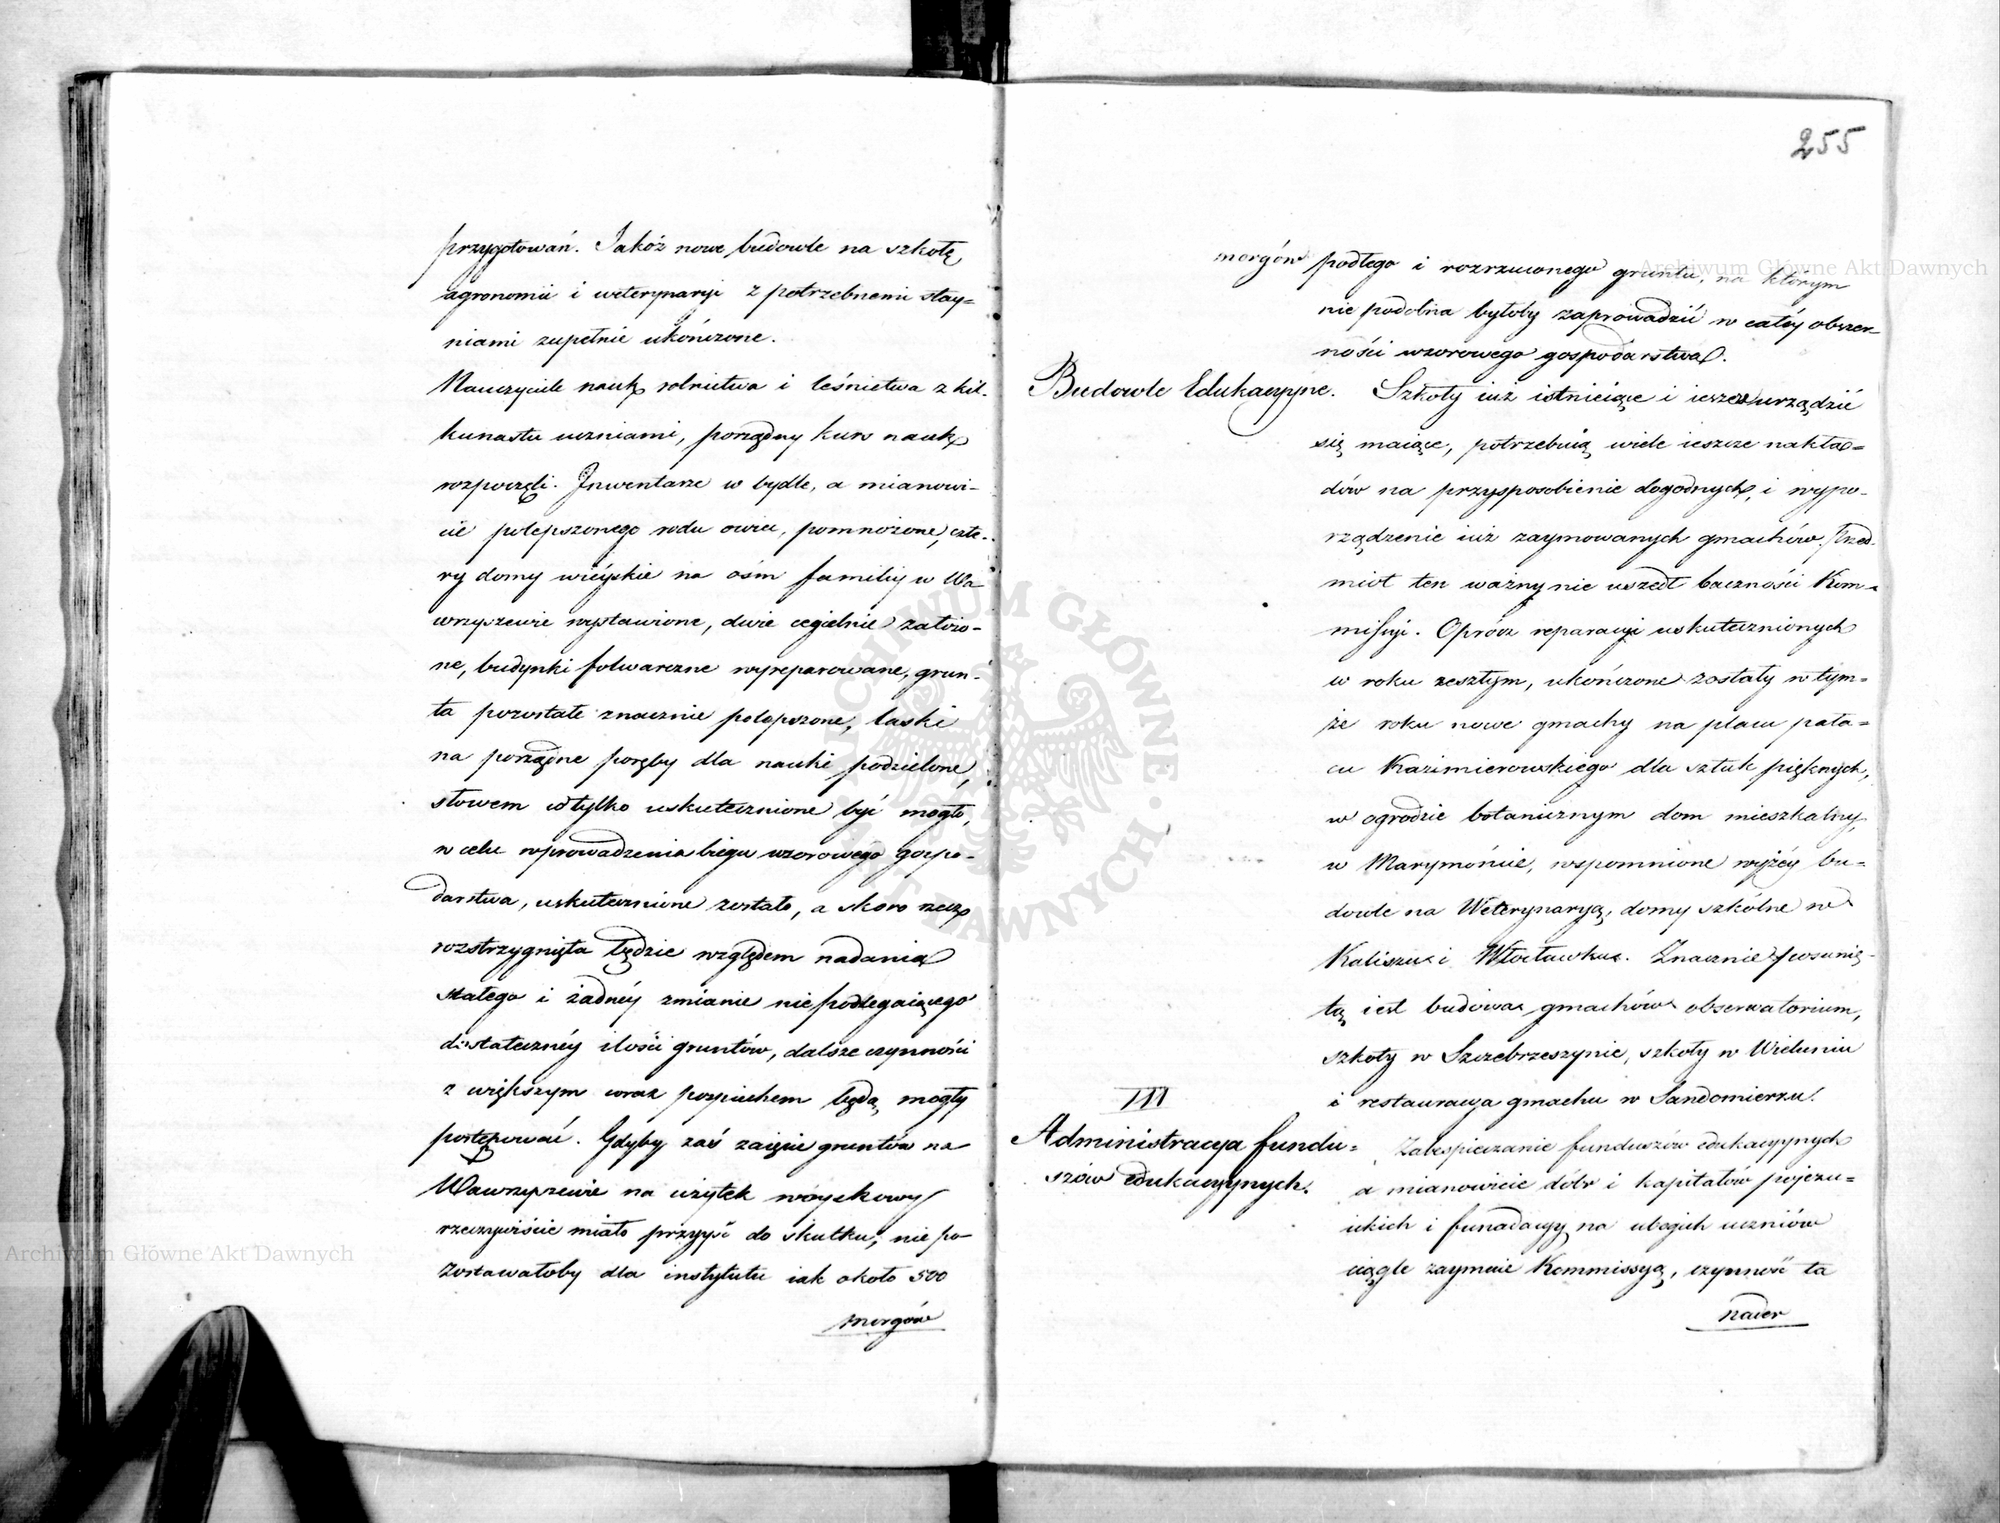 przygotowań. Jakóż nowe budowle na szkołę
agronomii i weterynaryi z potrzebnemi stay=
niami zupełnie ukończone.
Nauczyciele nauk rolnictwa i leśnictwa z kil-
kunastu uczniami, porządny kurs nauk
rozpoczęli. Inwentarze w bydle, a mianowi-
cie polepszonego rodu owiec, pomnożone, czte-
ry domy wieyskie na ośm familiy w Wa-
wrzyszewie wystawione, dwie cegielnie założo-
ne, budynki folwarczne wyreparowane, grun-
ta pozostałe znacznie polepszone, laski
na porządne poręby dla nauki podzielone,
słowem co tylko uskutecznione być mogło,
w celu wprowadzenia biegu wzorowego gospo-
darstwa, uskutecznione zostało, a skoro rzecz
rozstrzygnięta będzie względem nadania
stałego i żadnéy zmianie niepodlegaiącego
dostatecznéy ilości gruntów, dalsze czynności
z większym coraz pospiechem będą mogły
postępować. Gdyby zaś zaięcie gruntów na
Wawrzyszewie na użytek woyskowy
rzeczywiście miało przyyść do skutku, nie po-
zostawałoby dla instytutu iak około 500
morgów
255
morgów podłego i rozrzuconego gruntu, na którym
niepodobna byłoby zaprowadzić w całéy obszer-
ności wzorowego gospodarstwa.
Budowle Edukacyyne. Szkoły iuż istnieiące i ieszcze urządzić
się maiące, potrzebuią wiele ieszcze nakła=
dów na przysposobienie dogodnych, i wypo-
rządzenie iuż zaymowanych gmachów. Przed-
miot ten ważny nie uszedł baczności Kom-
missyi. Oprócz reparacyi uskutecznionych
w roku zeszłym, ukończone zostały w tym=
że roku nowe gmachy na placu pała=
cu Kazimierowskiego dla sztuk pięknych,
w ogrodzie botanicznym dom mieszkalny,
w Marymoncie, wspomnione wyżéy bu=
dowle na Weterynaryą, domy szkólne w
Kaliszu i Włocławku. Znacznie posunię-
tą iest budowa gmachów obserwatorium,
szkoły w Szczebrzeszynie, szkoły w Wieluniu
i restauracya gmachu w Sandomierzu.
III
Administracya fundu=
szów edukacyynych.
Zabespieczanie funduszów edukacyynych
a mianowicie dóbr i kapitałów pojezu=
ickich i fundacyy na ubogich uczniów
ciągle zaymuie Kommissyą, czynność ta
nader
Archiwum Główne Akt Dawnych
Archiwum Główne Akt Dawnych
ARCHIWUM GŁÓWNE AKT DAWNYCH